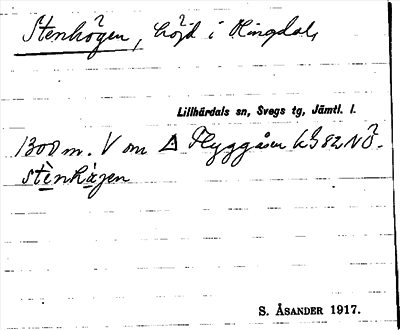 Stenhögen, höjd i Ringdals
Lillhärdals sn, Svegs tg, Jämtl. l.
1300 m. V om △ Flyggåsen kb 82 NÖ.
stènhö̀gen
S. ÅSANDER 1917.